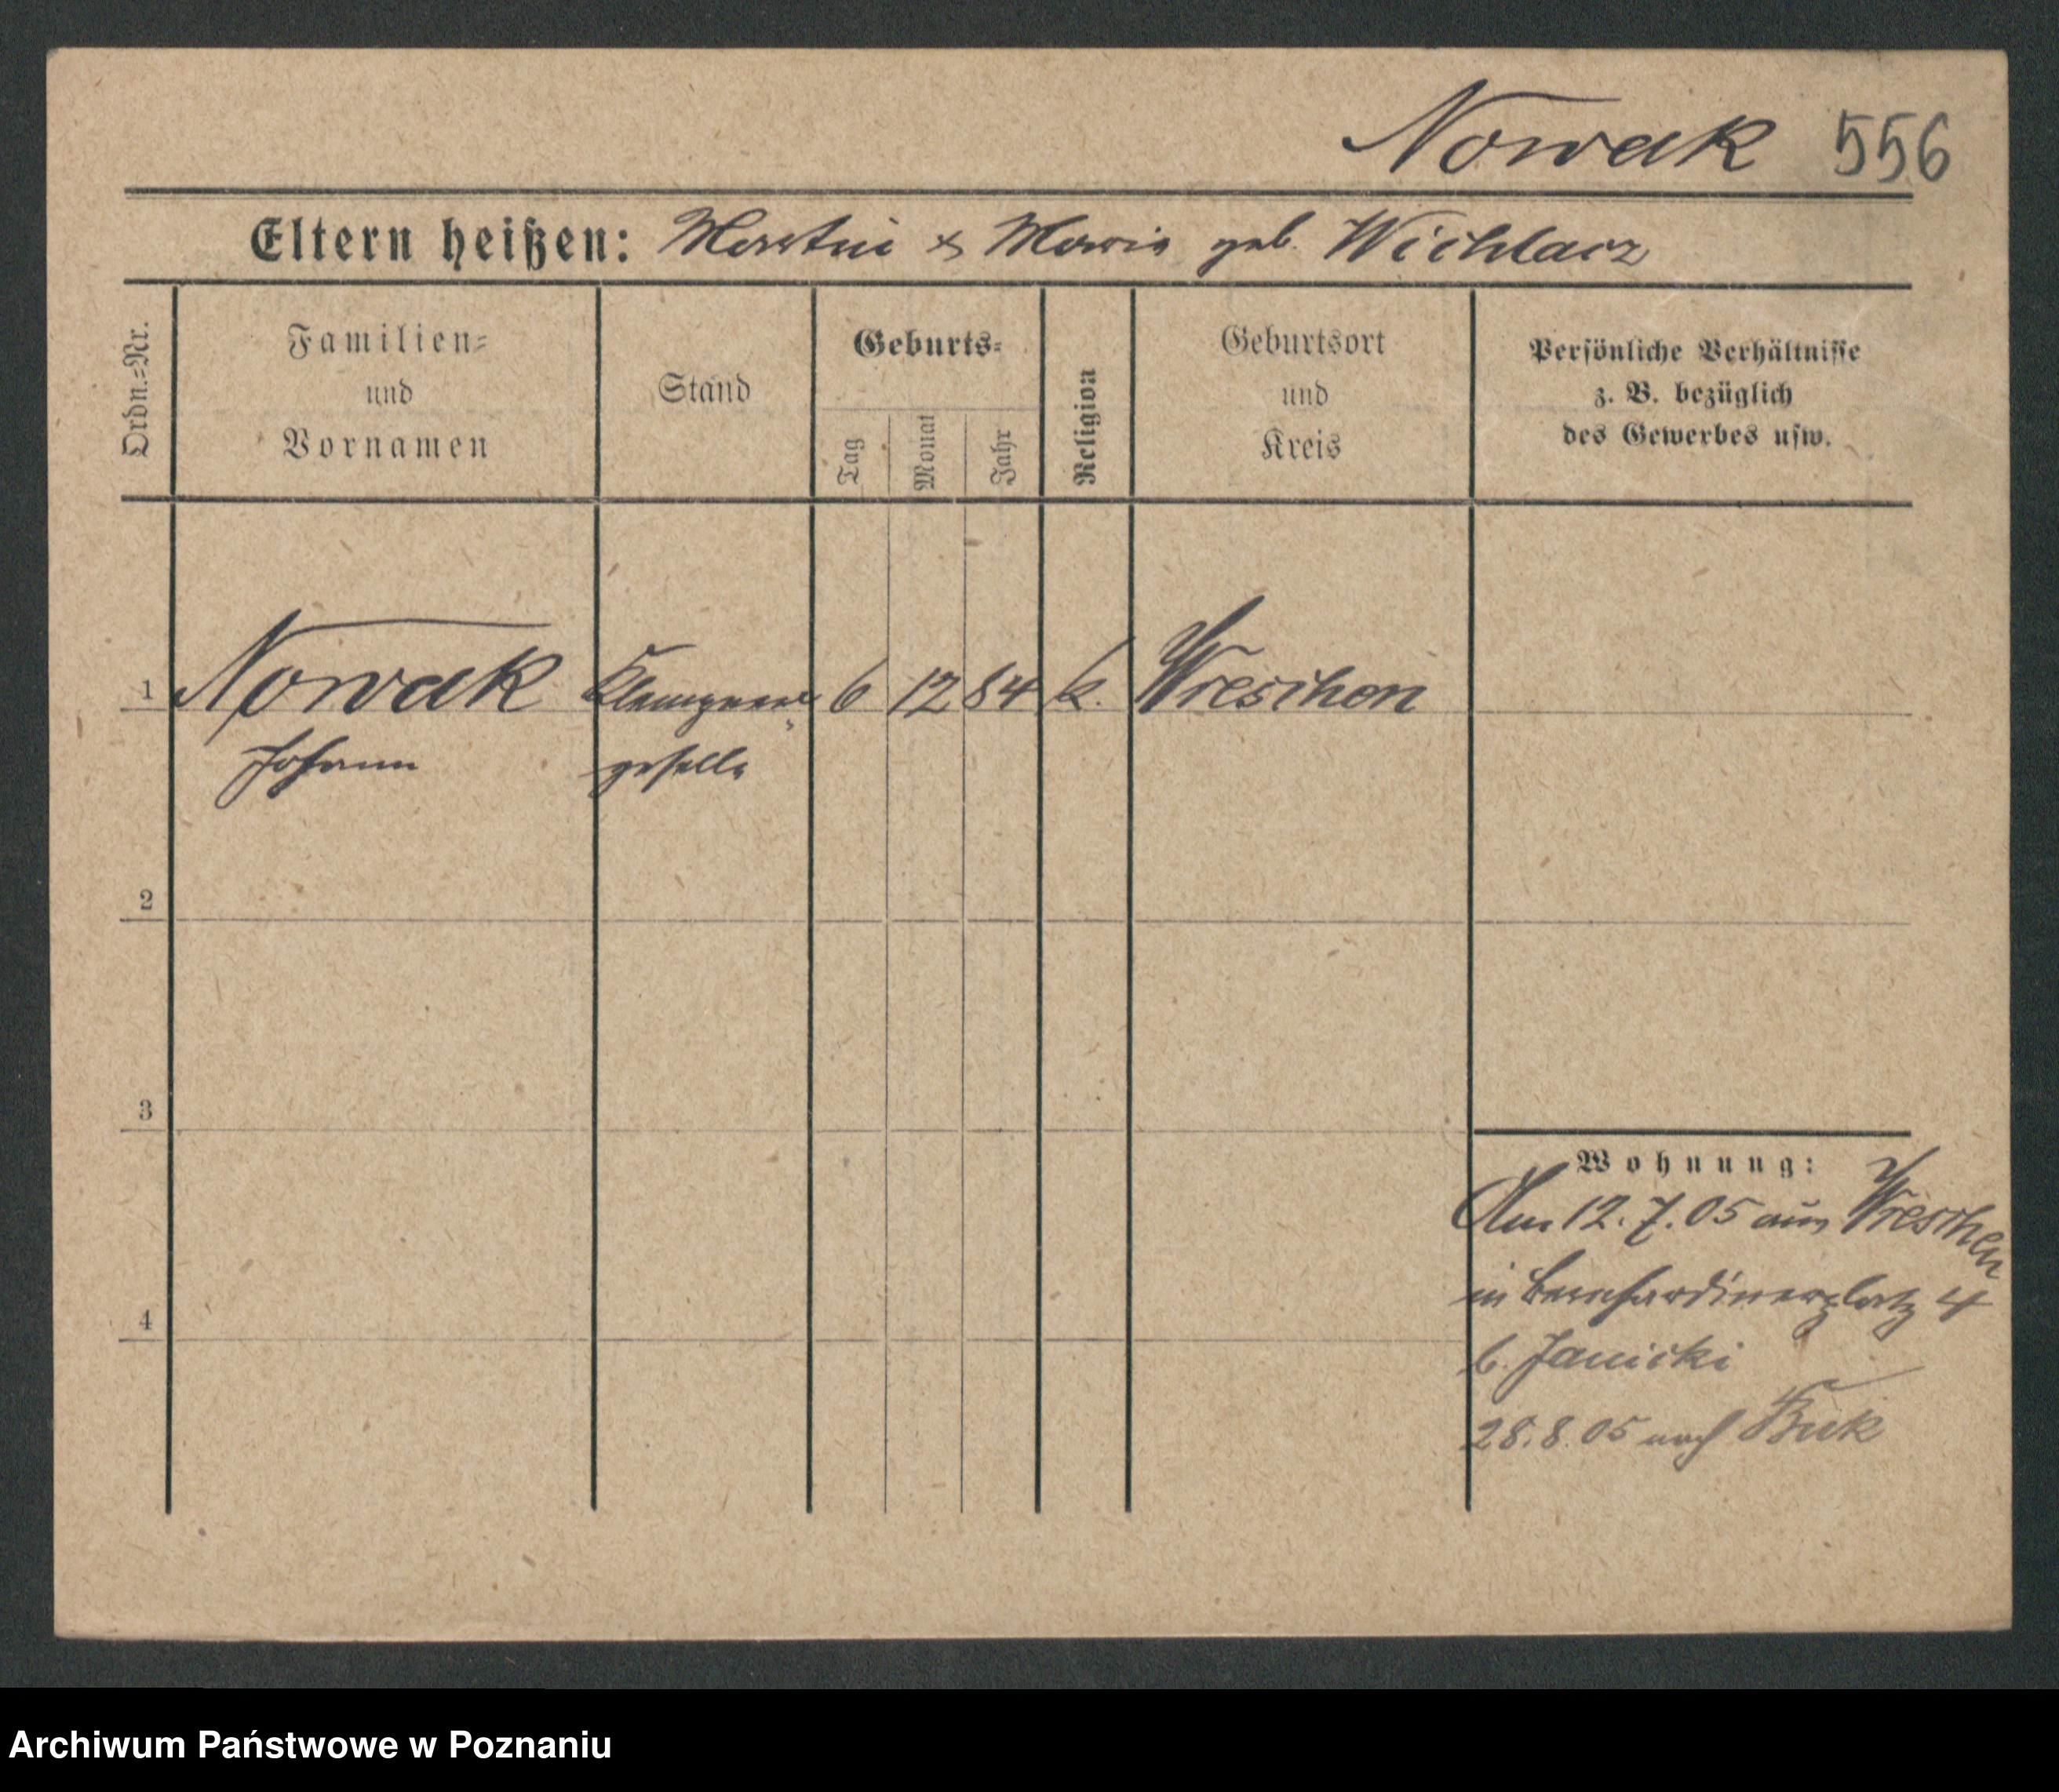 Nowak 556
Eltern heißen: Martin & Maria geb. Wichlacz
Ordn.-Nr.
Familien-
und
Vornamen
Stand
Geburts-
Tag
Monat
Jahr
Religion
Geburtsort
und
Kreis
Persönliche Verhältnisse
z. B. bezüglich
des Gewerbes usw.
1 Nowak Klempner 6 12 84 k. Wreschen
Johann geselle
2
3
4
Wohnung:
Am 12.7.05 aus Wreschen
in Bernhardinerplatz 4
b. Janicki
28.8.05 nach Buk
Archiwum Państwowe w Poznaniu